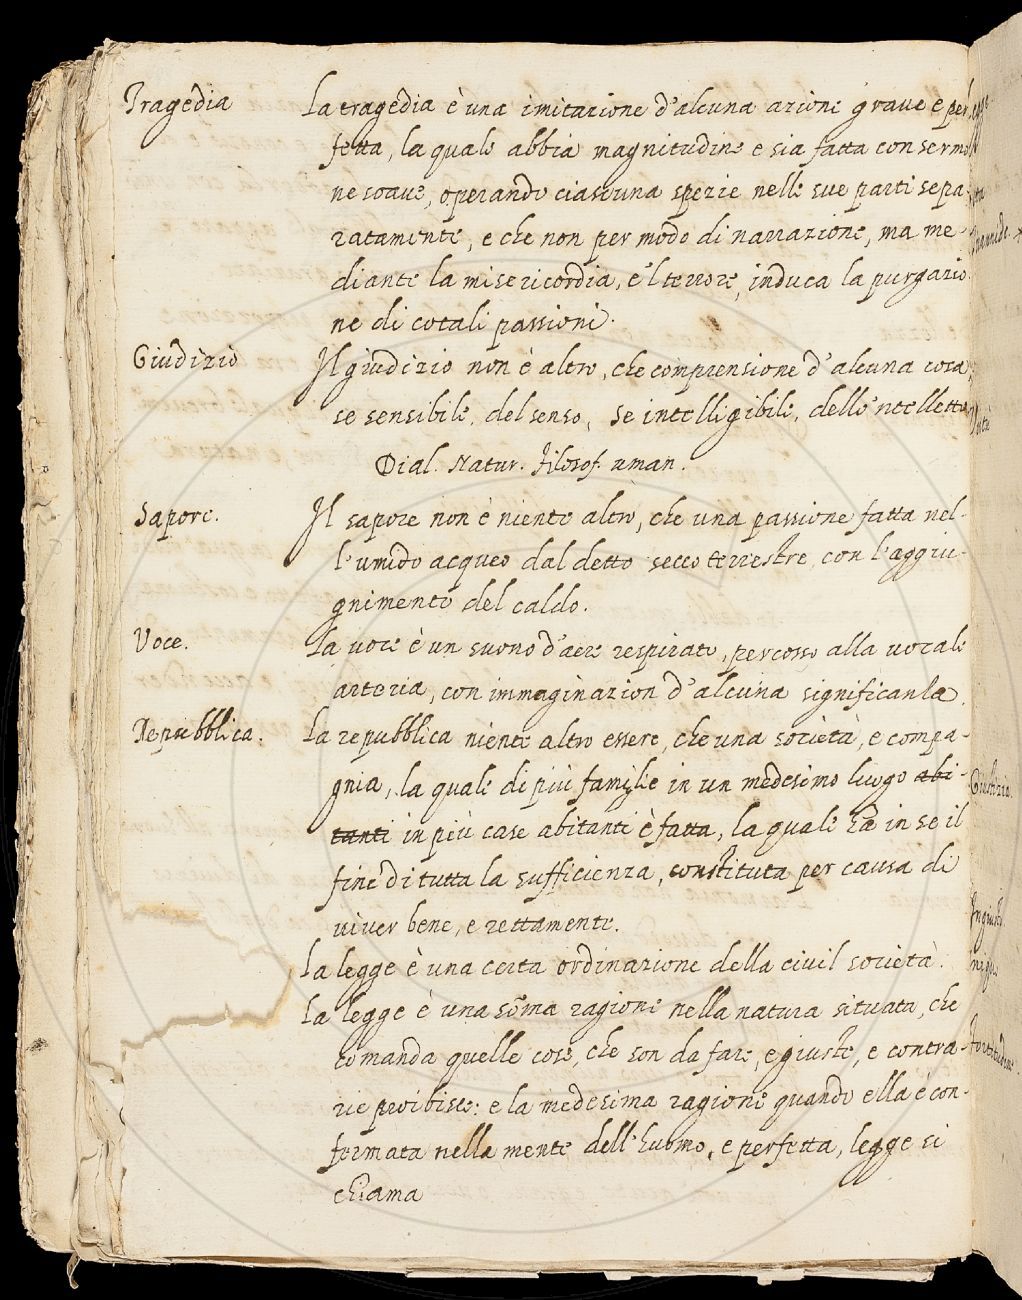 Tragedia La tragedia è una imitazione d'alcuna azione grave e per
fetta, la quale abbia magnitudine e sia fatta con sermo
ne soave, operando ciascuna spezie nelle sue parti sepa
ratamente, e che non per modo di narrazione, ma me-
diante la misericordia, e'l terrore, induca la purgazio
ne di cotali passioni.
Giudizio Il giudizio non è altro, che comprensione d'alcuna cosa,
se sensibile, del senso, se intelligibile, dello 'ntelletto
Dial. Natur. Filosof. uman.
Sapore. Il sapore non è niente altro, che una passione fatta nel-
l'umido acqueo dal detto secco terrestre, con l'aggiu-
gnimento del caldo.
Voce. La voce è un suono d'aere respirato, percosso alla vocale
arteria, con immaginazion d'alcuna significanza.
Repubblica. La repubblica niente altro essere, che una società, e compa-
gnia, la quale di più famiglie in un medesimo luogo abi-
tanti in più case abitanti è fatta, la quale ha in se il
fine di tutta la sufficienza, constituta per causa di
viver bene, e rettamente.
La legge è una certa ordinazione della civil società.
La legge è una sõma ragione nella natura situata, che
comanda quelle cose, che son da fare, e giuste, e contra-
rie proibisce: e la medesima ragione quando ella è con-
fermata nella mente dell'huomo, e perfetta, legge si
chiama